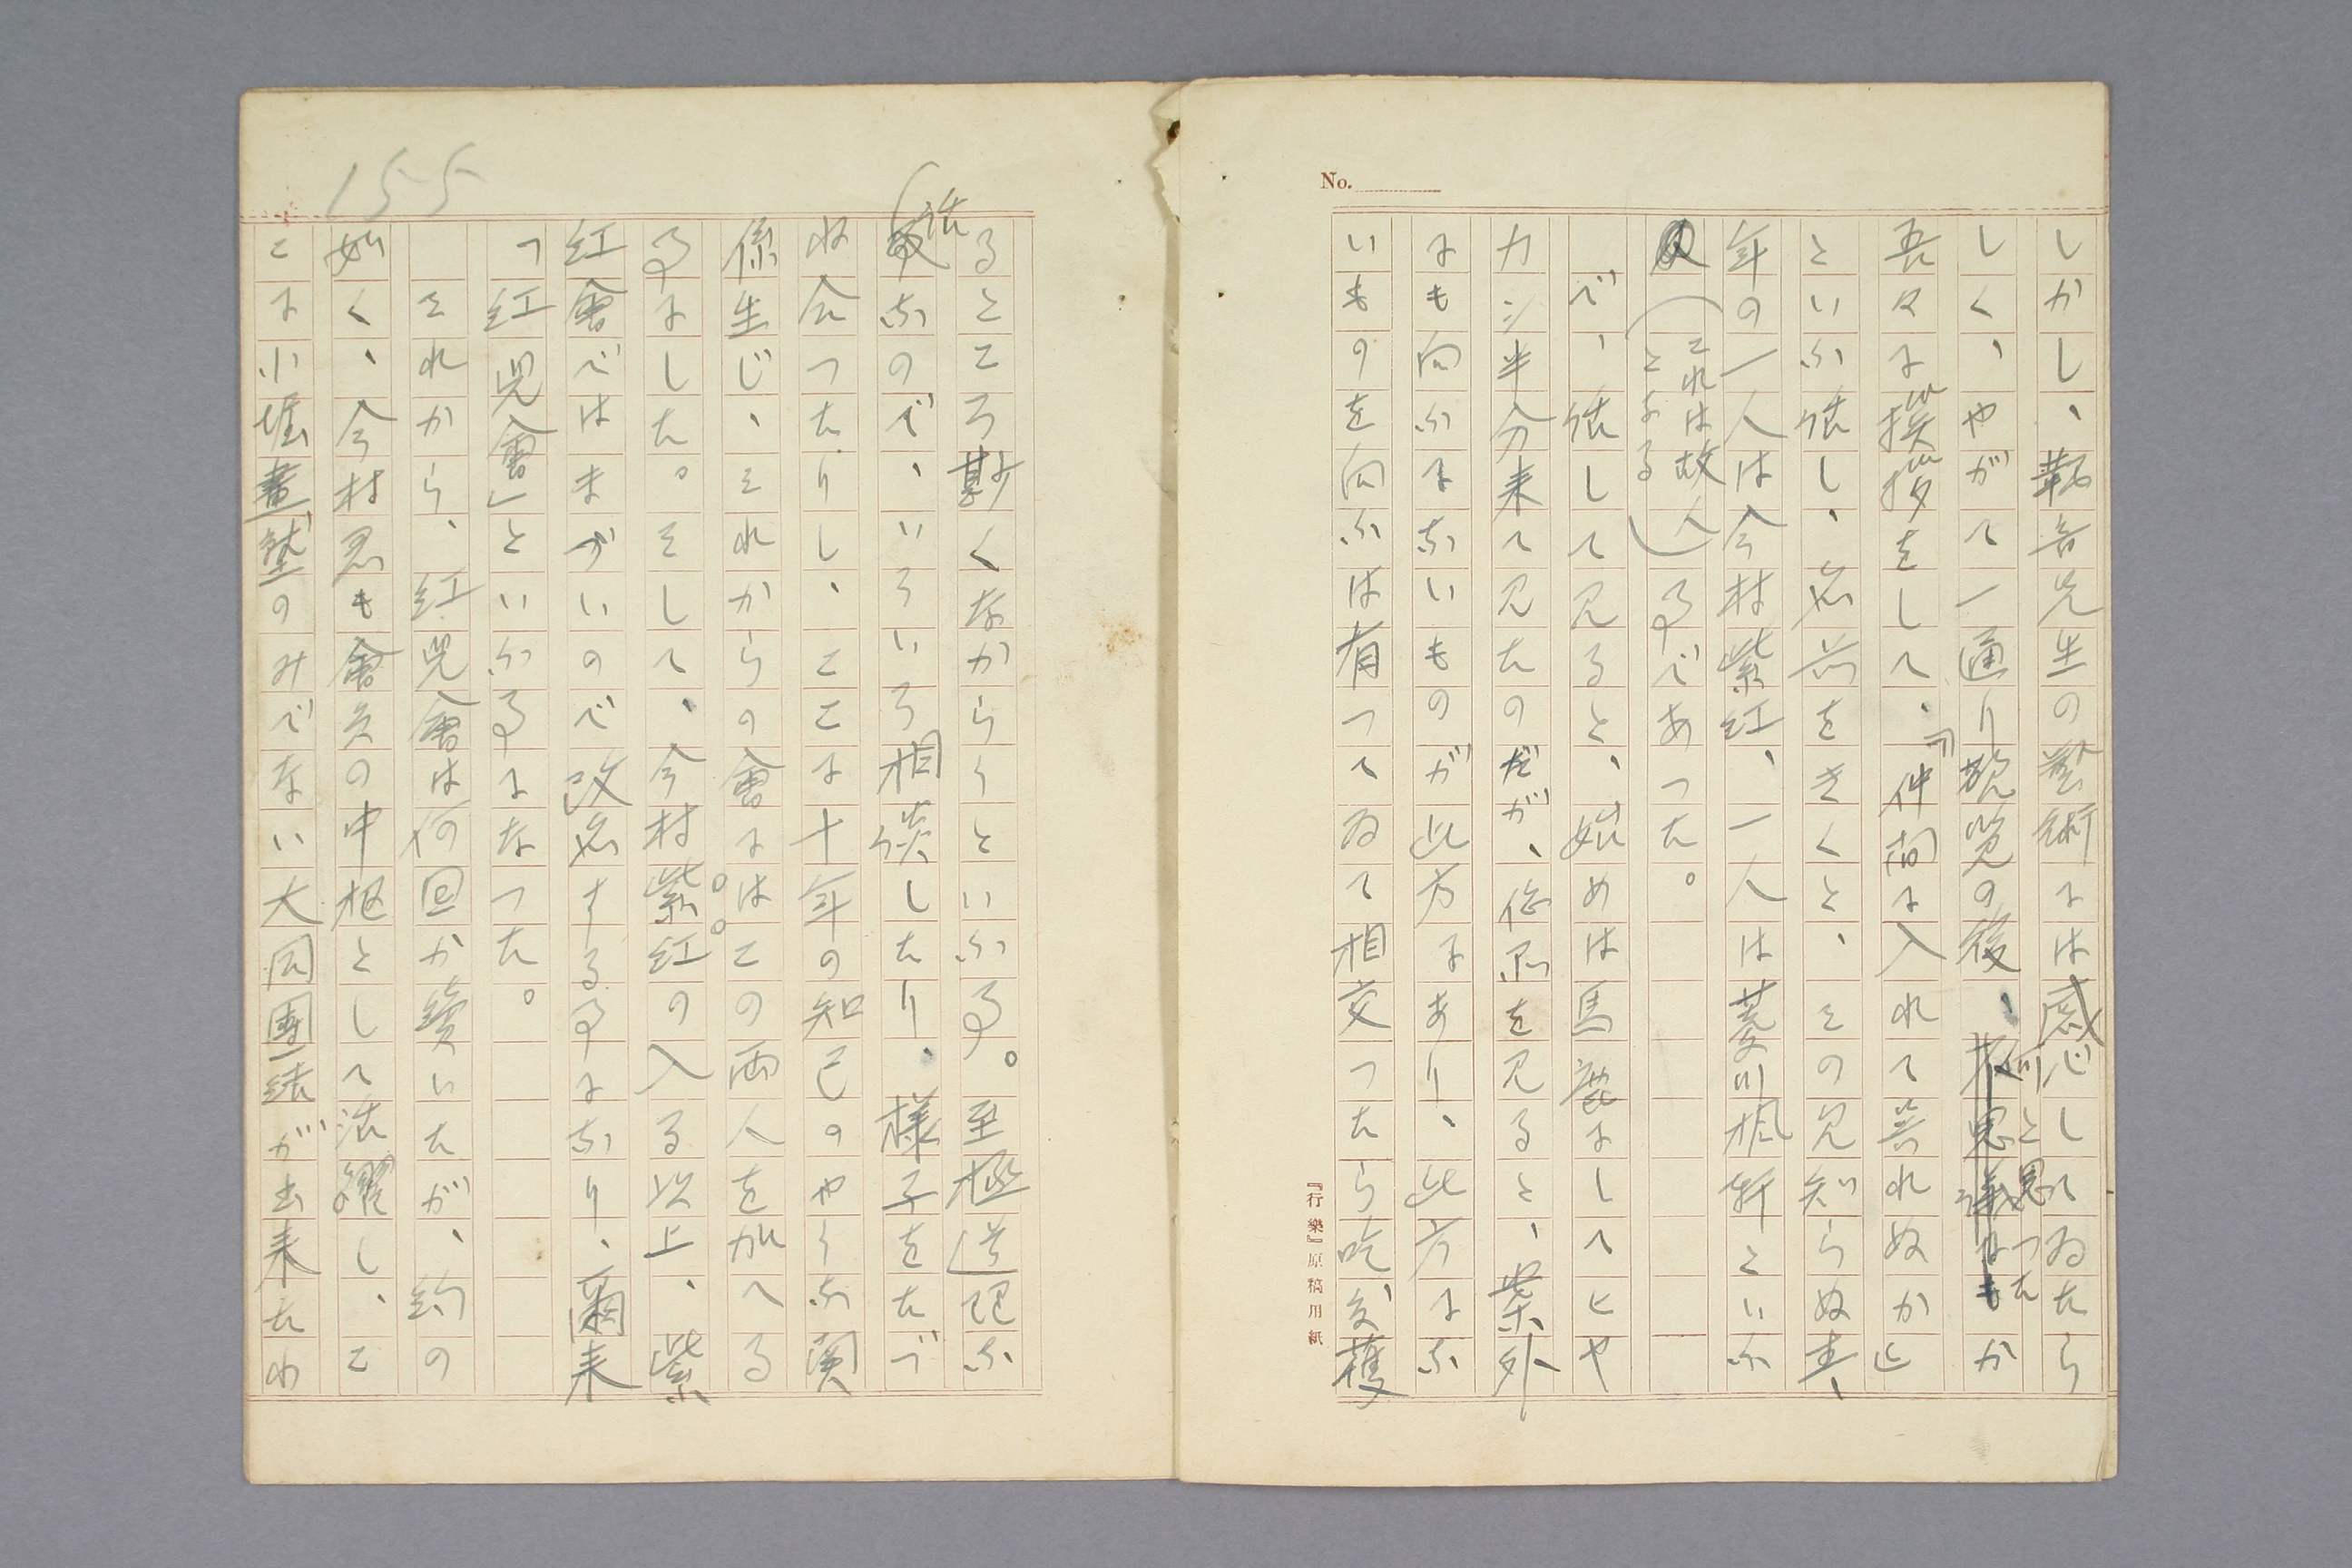 No.
しかし、鞆音先生の藝術には感心してゐたら
しく、やがて一通り観覧の後、何と思つたか
吾々に挨拶をして、『仲間に入れて呉れぬか』
といふ話し、名前をきくと、その見知らぬ青
年の一人は今村紫紅、一人は菱川楓軒といふ
(これは故人となる)
事であつた。
で、話して見ると、始めは馬鹿にしてヒヤ
カシ半分来て見たのだが、作品を見ると、案外
にも向ふにないものが此方にあり、此方にな
いものを向ふは有つてゐて相交つたら吃度獲
『行樂』原稿用紙
155
るところ尠くなからうといふ事。至極道理な
話なので、いろいろ相談したり、様子をたづ
ね合つたりし、ここに十年の知己のやうな関
係生じ、それからの會にはこの両人を加へる
事にした。そして、今村紫紅の入る以上、紫
紅會ではまづいので改名する事になり、爾来
「紅児會」といふ事になつた。
それから、紅児會は何回か續いたが、約の
如く、今村君も會員の中枢として活躍し、こ
こに小堀畫塾のみでない大同團結が出来たわ